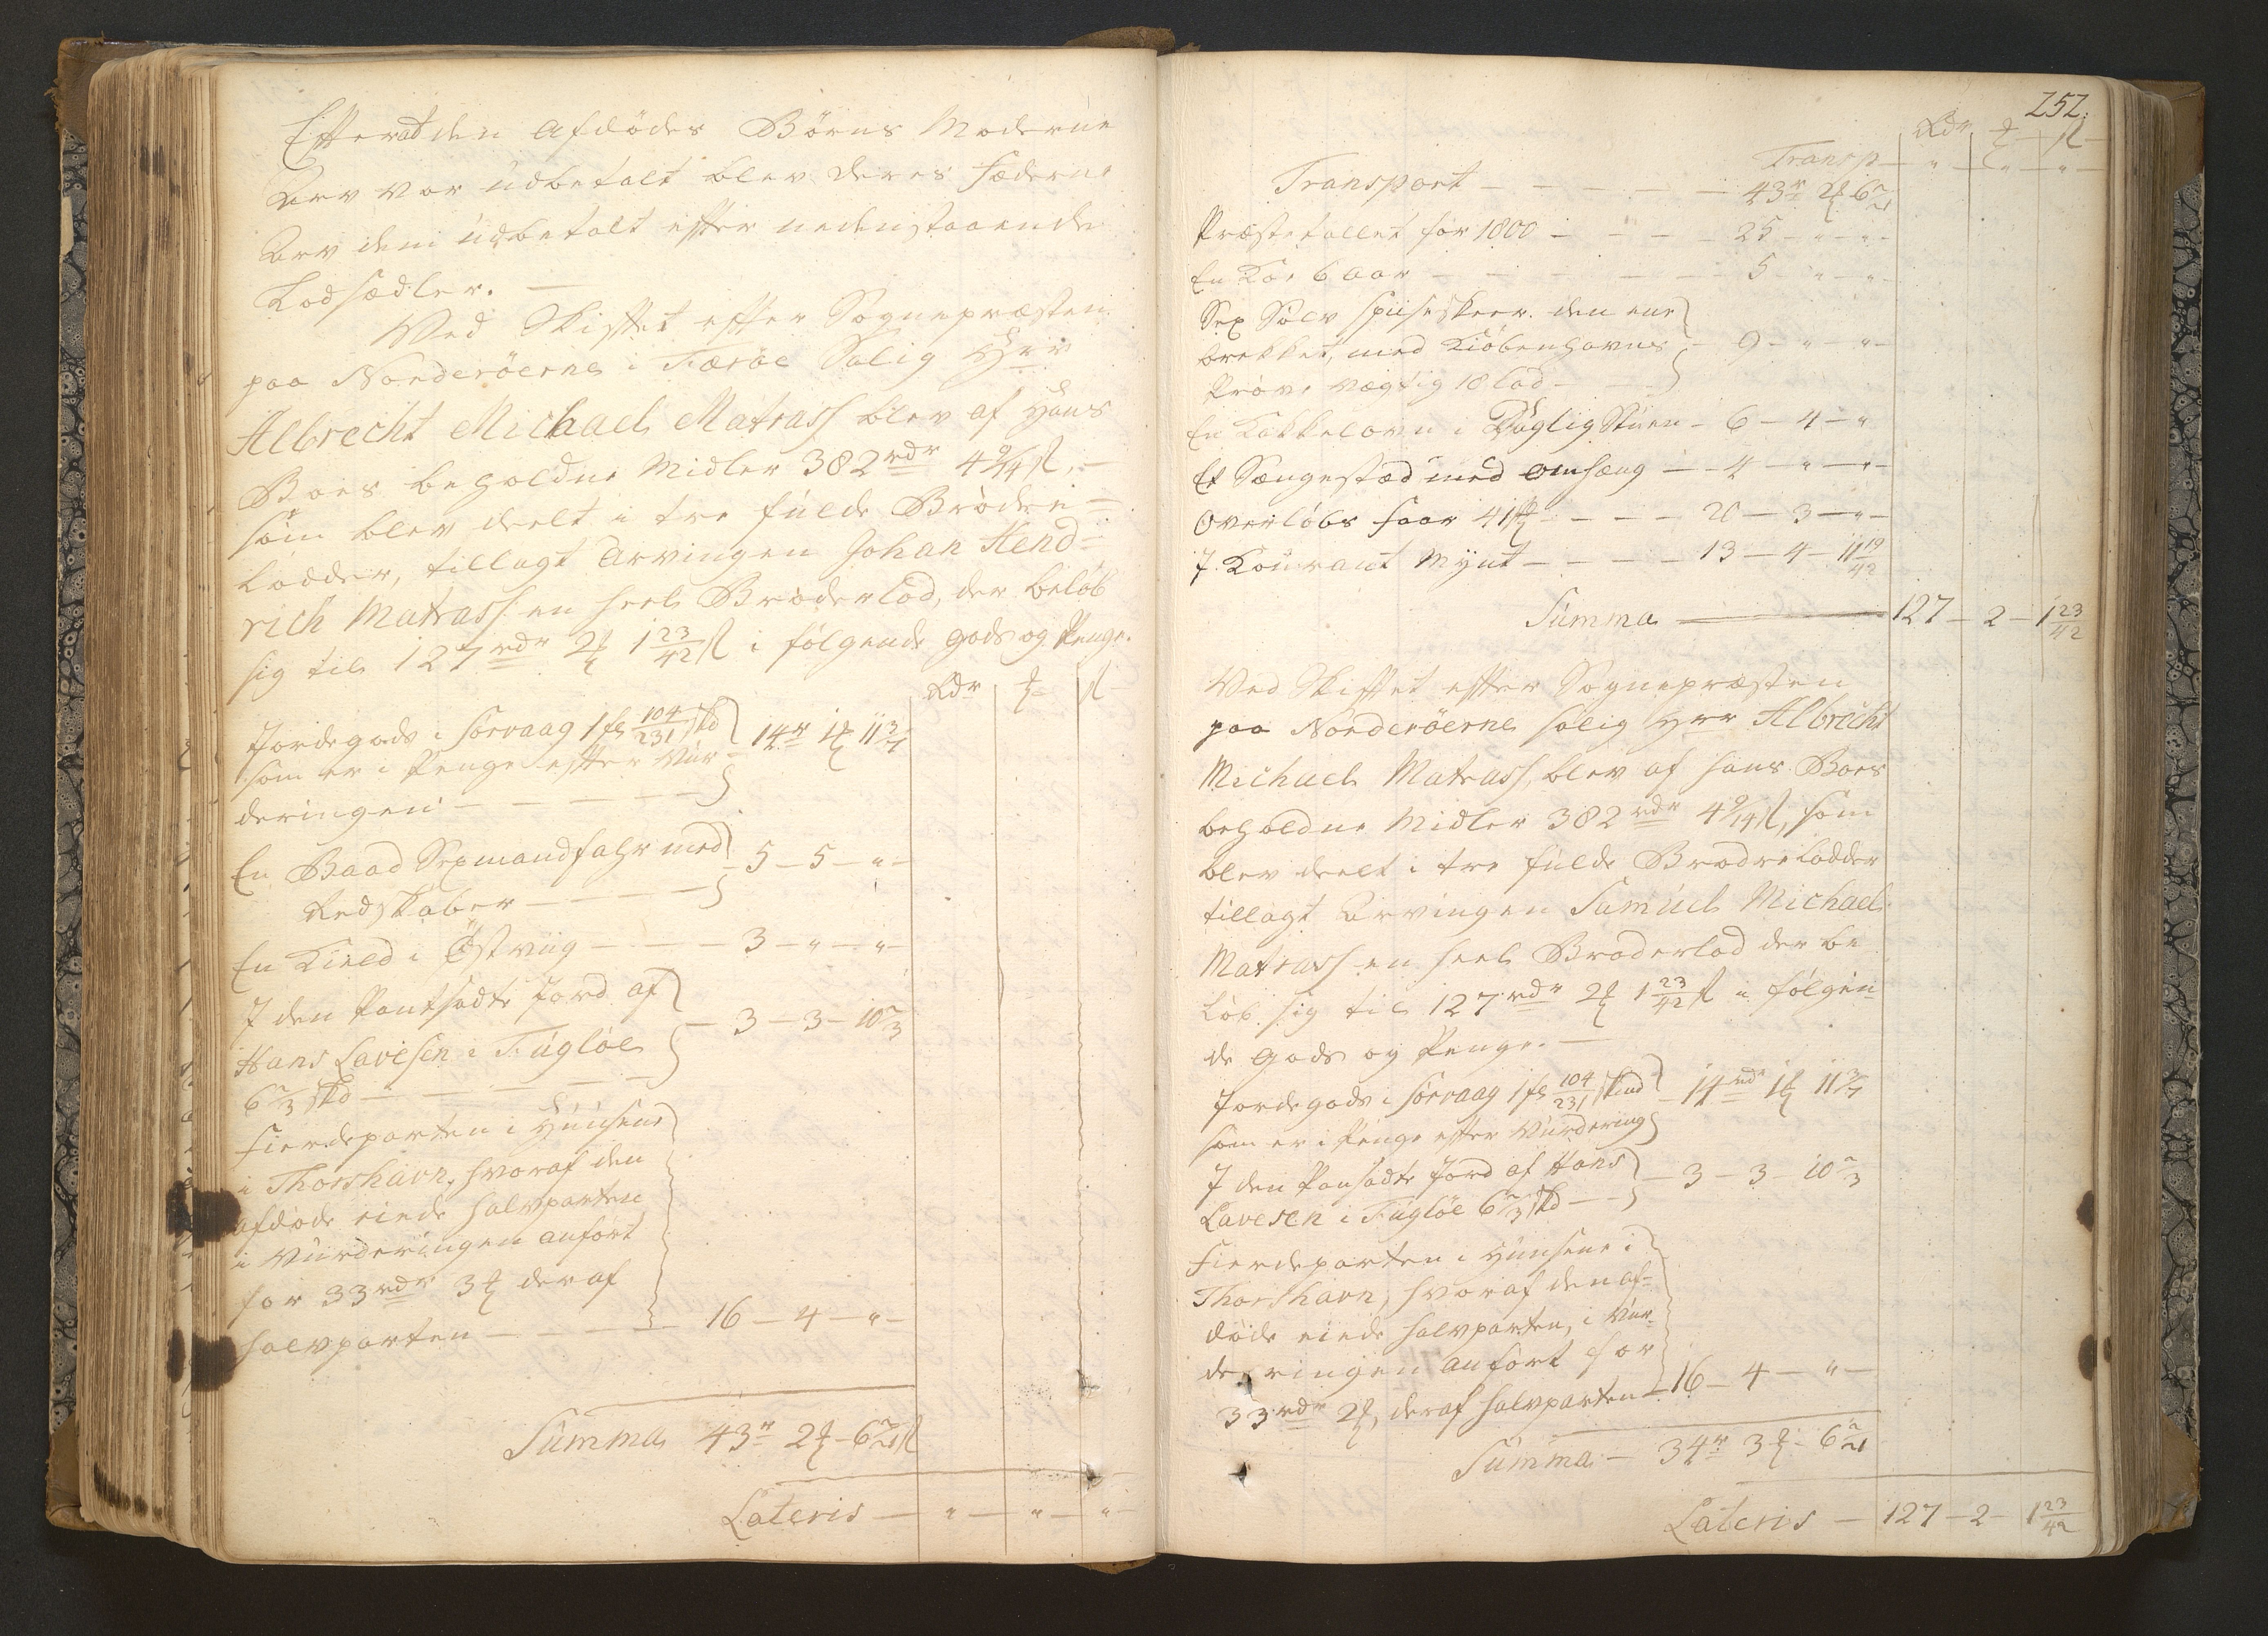 Efterat den afdødes Børns Moderne
Arv var udbetalt blev deres Fæderne
Arv dem udbetalt efter nedenstaaende
Lodsædler. —
Ved Skiftet efter Sognepræsten
paa Norderöerne i Færöe Salig Hrr
Albrecht Michael Matrass blev af Hans
Boes beholdne Midler 382 rdr 4 9/14 ß. —
som blev deelt i tre fulde Bröder=
Lodder, tillagt Arvingen Johan Hend=
rich Matrass en heel Broderlod, der belöb
sig til 127 rdr 2 ℳ 1 23/42 ß i følgende Gods og Penge.
Rdr ℳ ß
Jordegods i Sorvaag 1 fs 104/231 Skd
som er i Penge efter Vur- 14 r 1 ℳ 11 3/7
deringen — — — —
En Baad Sexmandfahr med
Redskaber — — — 5 — 5 — " —
En Kield i Östviig — — — 3 — " — " —
I den Pantsadte Jord af
Hans Lavesen i Fugløe — 3 — 3 — 10 2/3
6 2/3 Skd — — — —
Fierdeparten i Huusene
i Thorshavn, hvoraf den
afdøde eiede halvparten
i Vurderingen anfört
for 33 rdr 3 ℳ deraf
halvparten — — — — 16 — 4 — " —
Summa 43 r 2 ℳ 6 2/21 ß
Lateris — " — " — " —
252.
Rdr ℳ ß
Transp — " — " — " —
Transport — — — — — 43 r 2 ℳ 6 2/21
Præstetollet for 1800 — — — — 25 — " — " —
En Koe 6 Aar — — — — — 5 — " — " —
Sex Sölv Spiiseskeer. den ene
brækket, med Kiöbenhavns — 9 — " — " —
Pröve vægtig 18 Lod — —
En Kakkelovn i Daglig Stuen — 6 — 4 — "
Et Sængestæd med Omhæng — — 4 — " — " —
Overlöbs Faar 41 ß — — — — 20 — 3 — " —
I Kourant Mynt — — — — 13 — 4 — 11 19/42
Summa — 127 — 2 — 1 23/42
Ved Skiftet efter Sognepræsten
paa Norderöerne salig Hrr Albrecht
Michael Matrass, blev af hans Boes
beholdne Midler 382 rdr 4 9/14 ß, som
blev deelt i tre fulde Brodre Lodder
tillagt Arvingen Samuel Michael
Matrass en heel Broderlod der be
löb sig til 127 rdr 2 ℳ 1 23/42 ß i følgen=
de Gods og Penge. —
Jordegods i Sörvaag 1 fs 104/231 Skind
som er i Penge efter Vurdering — 14 rdr 1 ℳ 11 3/7
I den Pansadte Jord af Hans
Lavesen i Fugløe 6 2/3 Skd — — 3 — 3 — 10 2/3
Fierdeparten i Huusene i
Thorshavn, hvoraf den af-
døde eiede halvparten, i Vur-
deringen anfört for
33 rdr 2 ℳ, deraf halvparten — 16 — 4 — " —
Summa — 34 r 3 ℳ 6 2/21
Lateris — 127 — 2 — 1 23/42